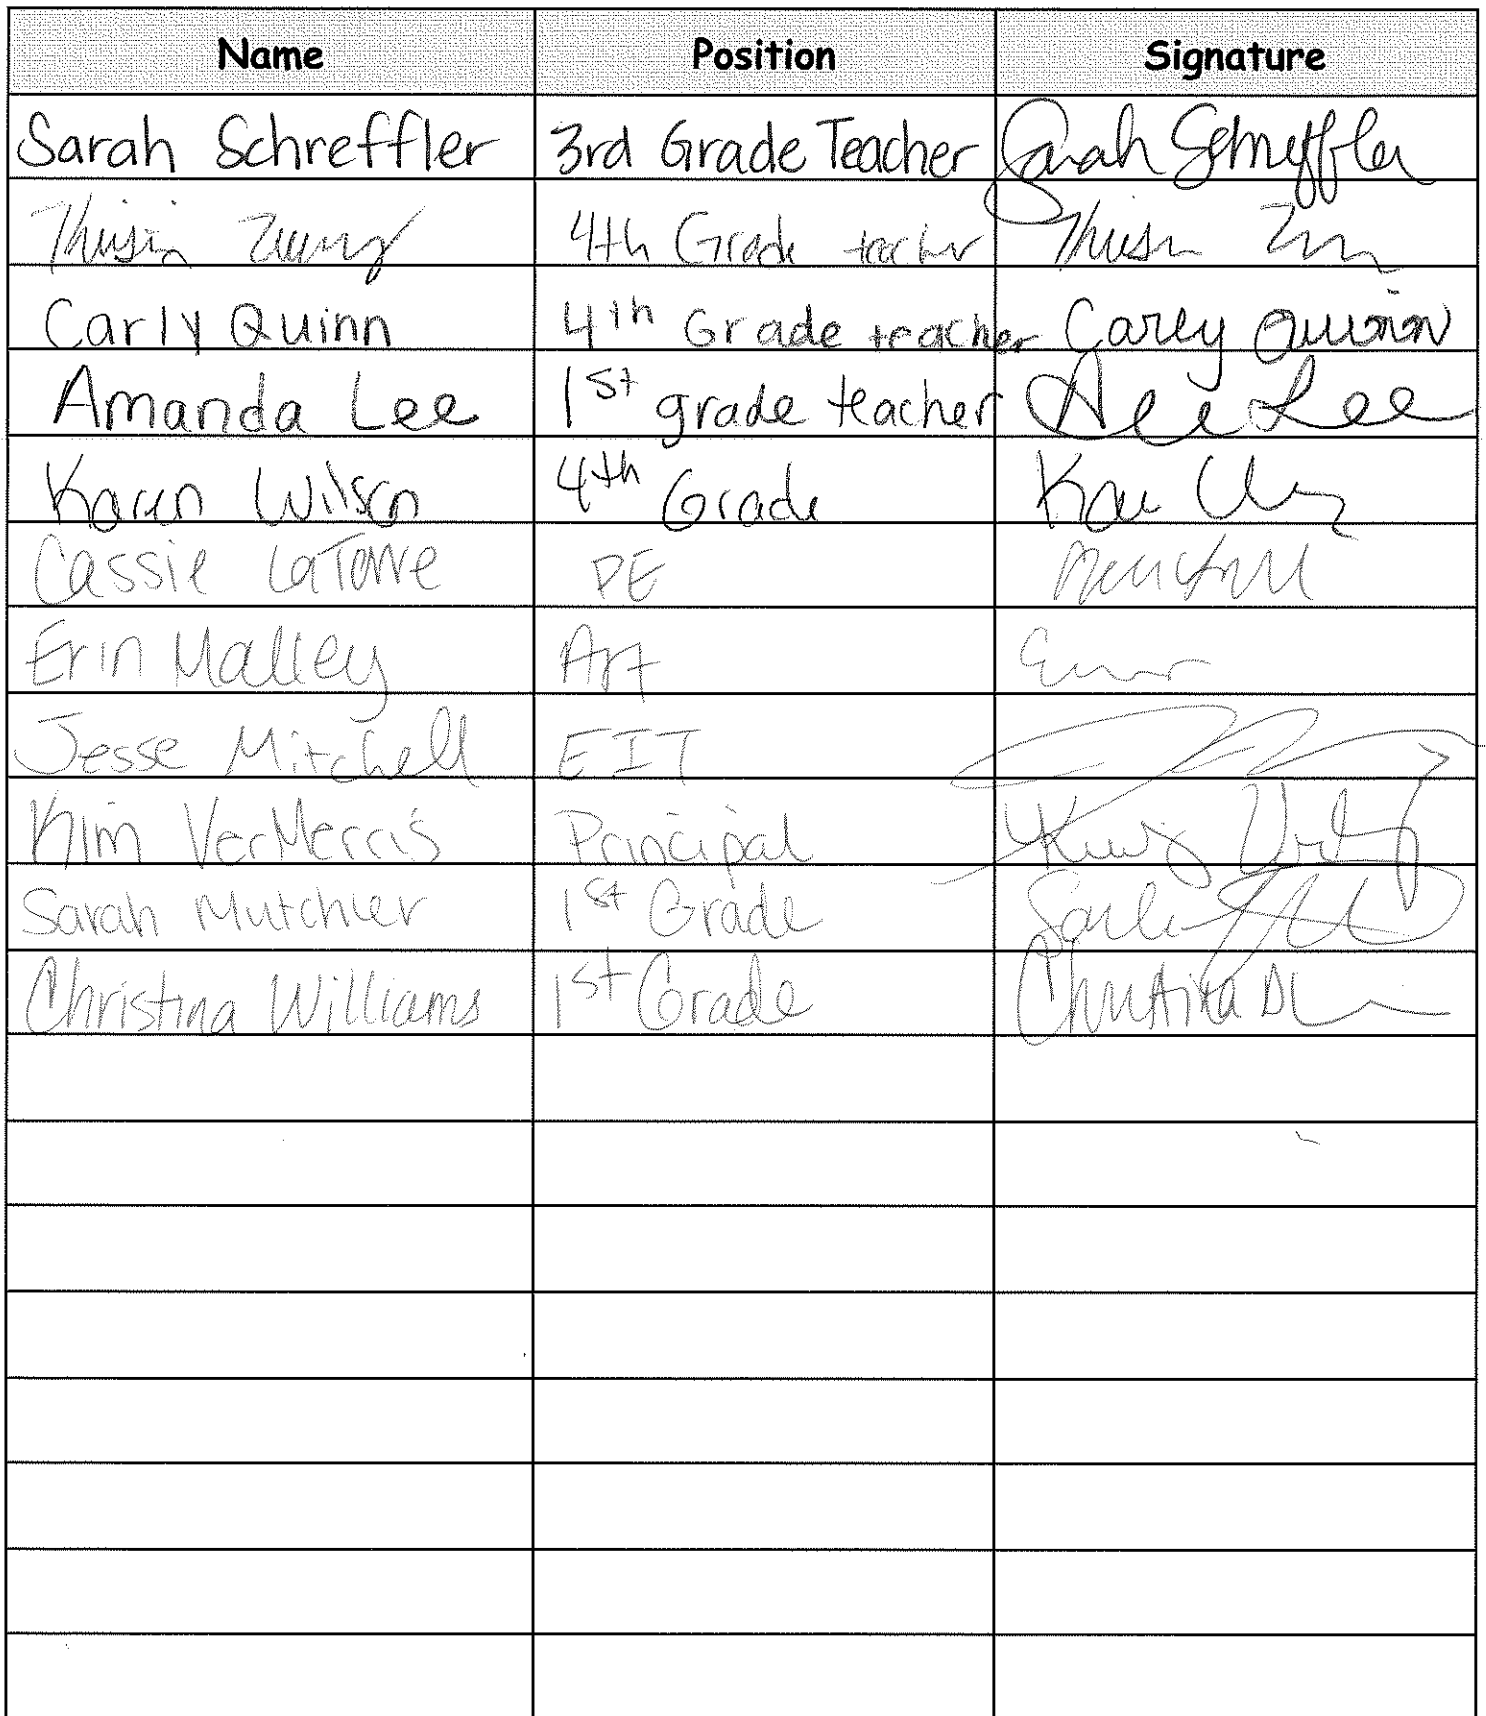 Name Position Signature
Sarah Schreffler 3rd Grade Teacher Sarah Schreffler
4th Grade teacher
Carly Quinn 4th Grade teacher Carly Quinn
Amanda Lee 1st grade teacher Lee
Karen Wilson 4th Grade
Cassie LaTowe PE
Erin Malley Art
Jesse Mitchell EIT
Kim VerMerris Principal
Sarah Mutchler 1st Grade
Christina Williams 1st Grade Christina